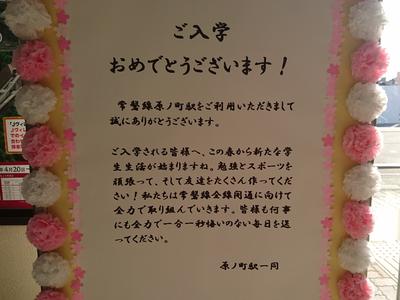 ご入学
おめでとうございます！
常磐線原ノ町駅をご利用いただきまして
誠にありがとうございます。
ご入学される皆様へ、この春から新たな学
生生活が始まりますね。勉強とスポーツを
頑張って、そして友達をたくさん作ってくださ
い！私たちは常磐線全線開通に向けて
全力で取り組んでいきます。皆様も何事
にも全力で一分一秒悔いのない毎日を送
ってください。
原ノ町駅一同
4月20日